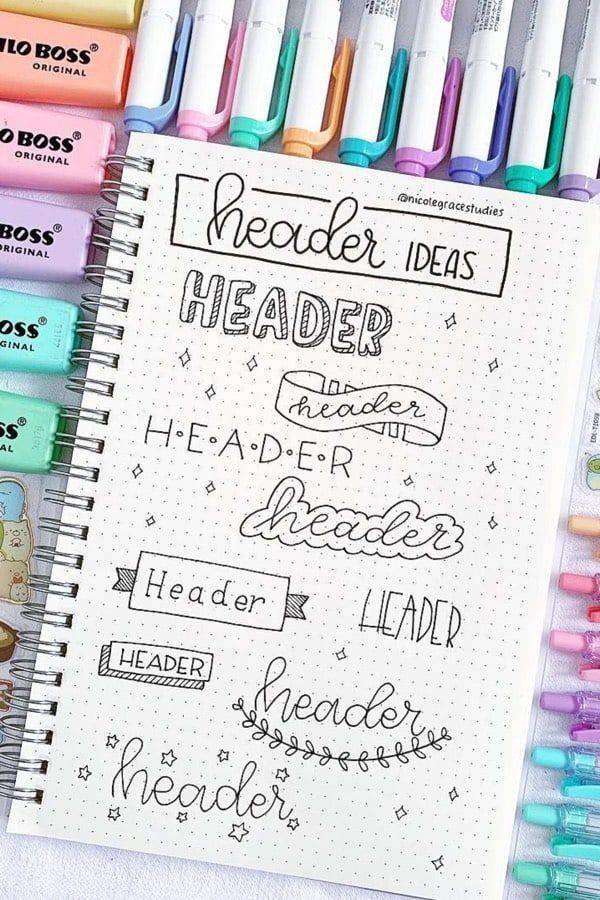 LO BOSS®
ORIGINAL
O BOSS®
ORIGINAL
BOSS®
RIGINAL
OSS®
GINAL
SS®
NAL
@nicolegracestudies
header IDEAS
HEADER
header
H•E•A•D•E•R
header
Header
HEADER
HEADER
header
header